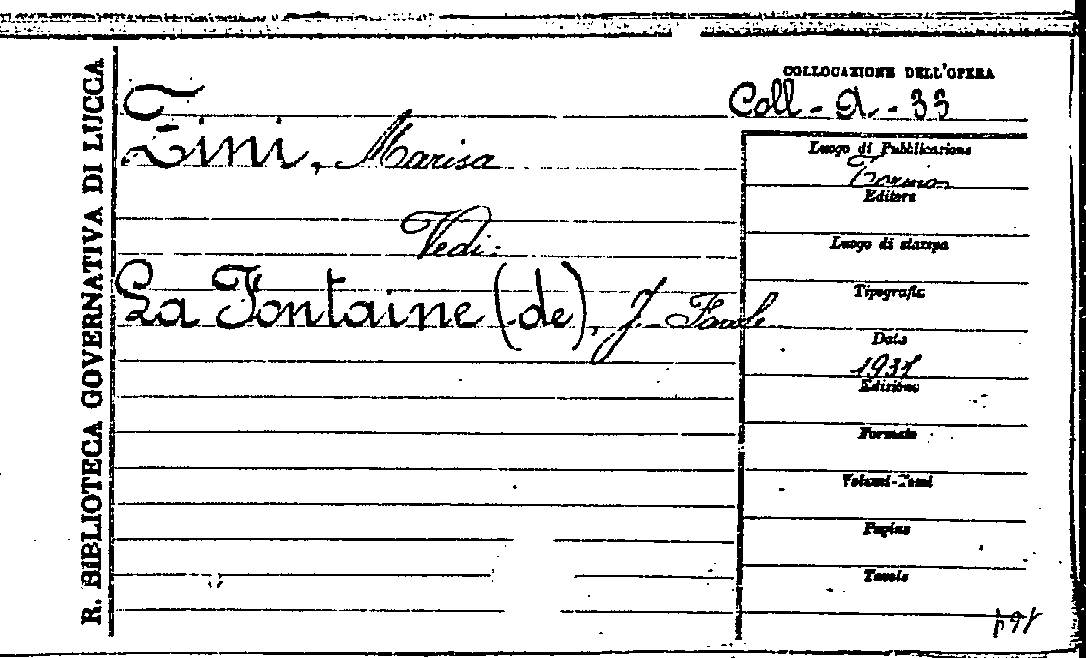 R. BIBLIOTECA GOVERNATIVA DI LUCCA
COLLOCAZIONE DELL'OPERA
Coll - A - 33
Zini, Marisa
Vedi:
La Fontaine (de), J. Favole
Luogo di Pubblicazione
Torino
Editore
Luogo di stampa
Tipografia
Data
Edizione
Formato
Volumi-Tomi
Pagine
Tavole